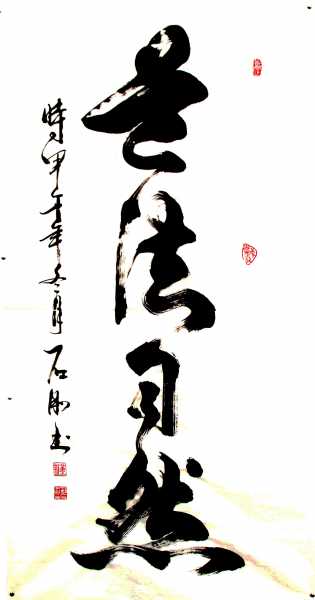 道法自然
時甲午年冬月石刚书